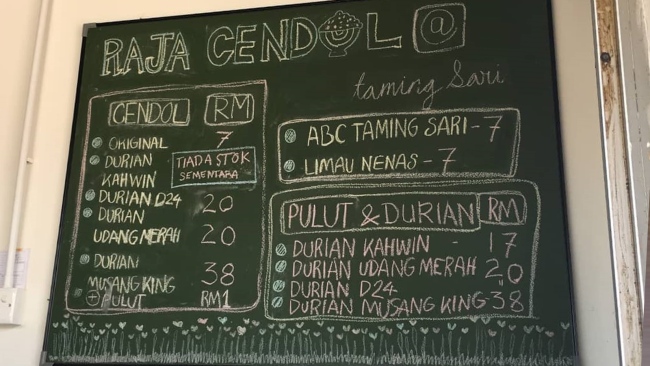 RAJA CENDOL @
taming Sari
CENDOL RM
ORIGINAL 7
DURIAN
KAHWIN
TIADA STOK
SEMENTARA
DURIAN D24 20
DURIAN
UDANG MERAH 20
DURIAN
MUSANG KING 38
+ PULUT RM1
ABC TAMING SARI - 7
LIMAU NENAS - 7
PULUT & DURIAN RM
DURIAN KAHWIN - 17
DURIAN UDANG MERAH 20
DURIAN D24 "
DURIAN MUSANG KING - 38